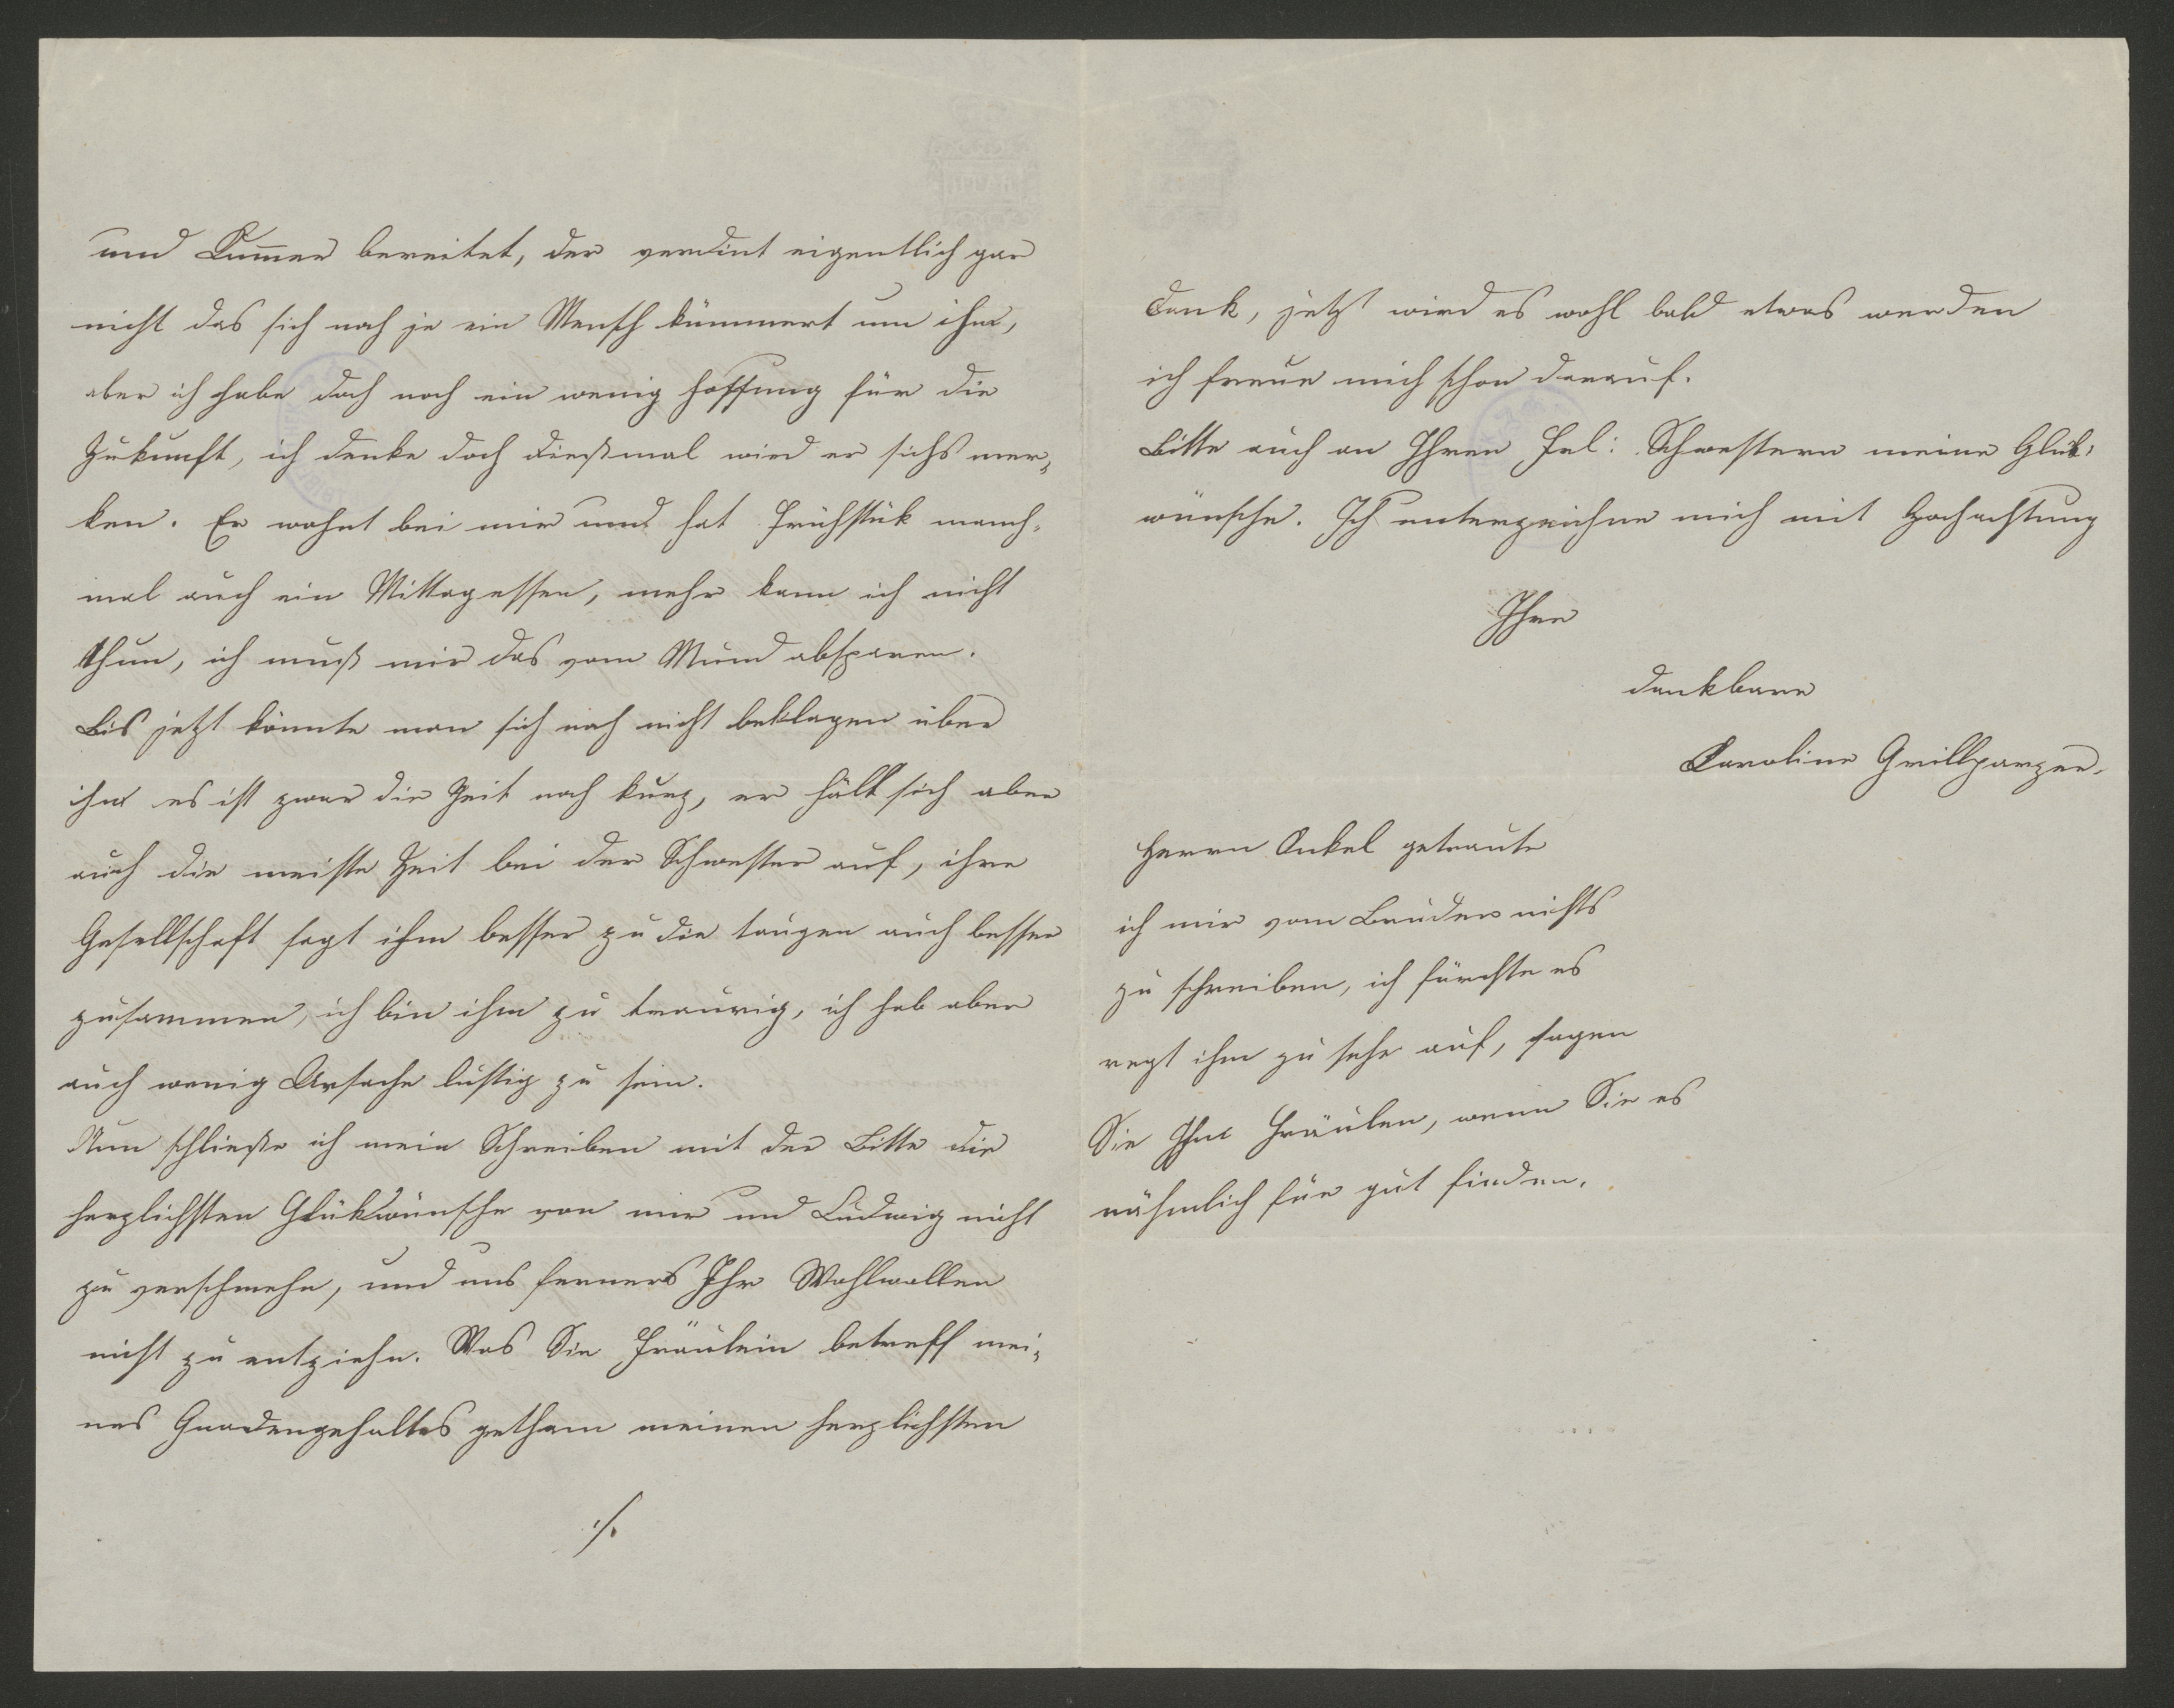 und Kum̅er bereitet, der verdint eigentlich gar
nicht das sich noch je ein Mensch kümmert um ihm,
aber ich habe doch noch ein wenig Hoffnung für die
Zukunft, ich denke doch dießmal wird er sichs mer¬
ken. Er wohnt bei mir und hat Frühstük manch¬
mal auch ein Mittagessen, mehr kann ich nicht
thun, ich muß mir das vom Mund absparen.
Bis jetzt könnte man sich noch nicht beklagen über
ihm es ist zwar die Zeit noch kurz, er hält sich aber
auch die meiste Zeit bei der Schwester auf, ihre
Gesellschaft sagt ihm besser zu die taugen auch besser
zusammen, ich bin ihm zu traurig, ich hab aber
auch wenig Ursache lustig zu sein.
Nun schließe ich mein Schreiben mit der Bitte die
herzlichsten Glükwünsche von mir und Ludwig nicht
zu verschmehn, und uns ferners Ihr Wohlwollen
nicht zu entziehn. Was Sie Fräulein betreff mei¬
nes Gnadengehaltes gethan meinen herzlichsten
./.
Dank, jetzt wird es wohl bald etwas werden
ich freue mich schon darauf.
Bitte auch an Ihren Frl: Schwestern meine Glük¬
wünsche. Ich unterzeichne mich mit Hochachtung
Ihre
dankbare
Caroline Grillparzer.
Herrn Onkel getraute
ich mir vom Bruder nichts
zu schreiben, ich fürchte es
regt ihm zu sehr auf, sagen
Sie Ihm Fräulen, wenn Sie es
nähmlich für gut finden.